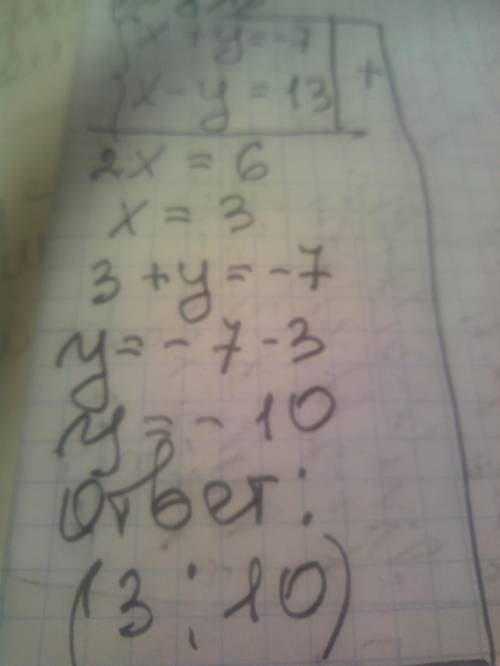 x + y = -7
x - y = 13 +
2x = 6
x = 3
3 + y = -7
y = - 7 - 3
y = - 10
Ответ:
(3 ; 10)